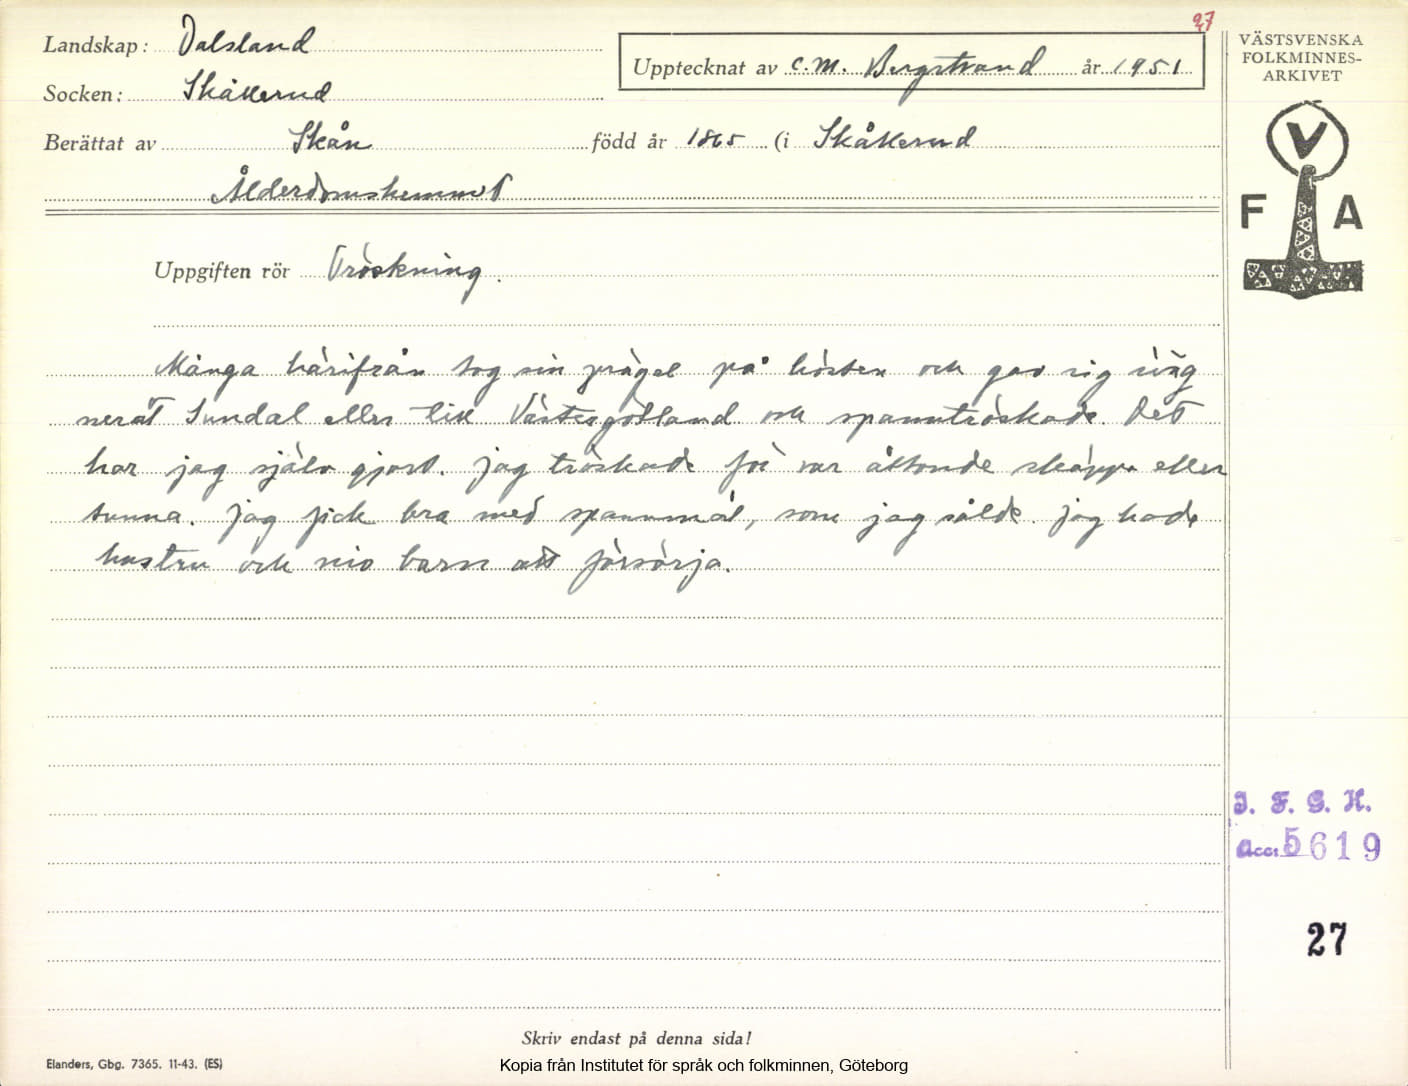 27
Landskap: Dalsland
Upptecknat av C.M. Bergstrand år 1951
Socken: Skåkerud
Berättat av Skån född år 1865 (i Skåkerud
Ålderdomshemmet
VÄSTSVENSKA
FOLKMINNES-
ARKIVET
V
F A
Uppgiften rör Tröskning.
Många härifrån tog sin prägel på hösten och gav sig iväg
neråt Sundal eller till Västergötland och spanntröskade. Det
har jag själv gjort. Jag tröskade för var åttonde skäppa eller
tunna. Jag fick bra med spannmål, som jag sålde. Jag hade
hustru och nio barn att försörja.
I. F. G. H.
Acc: 5619
27
Skriv endast på denna sida!
Elanders, Gbg. 7365. 11-43. (ES)
Kopia från Institutet för språk och folkminnen, Göteborg